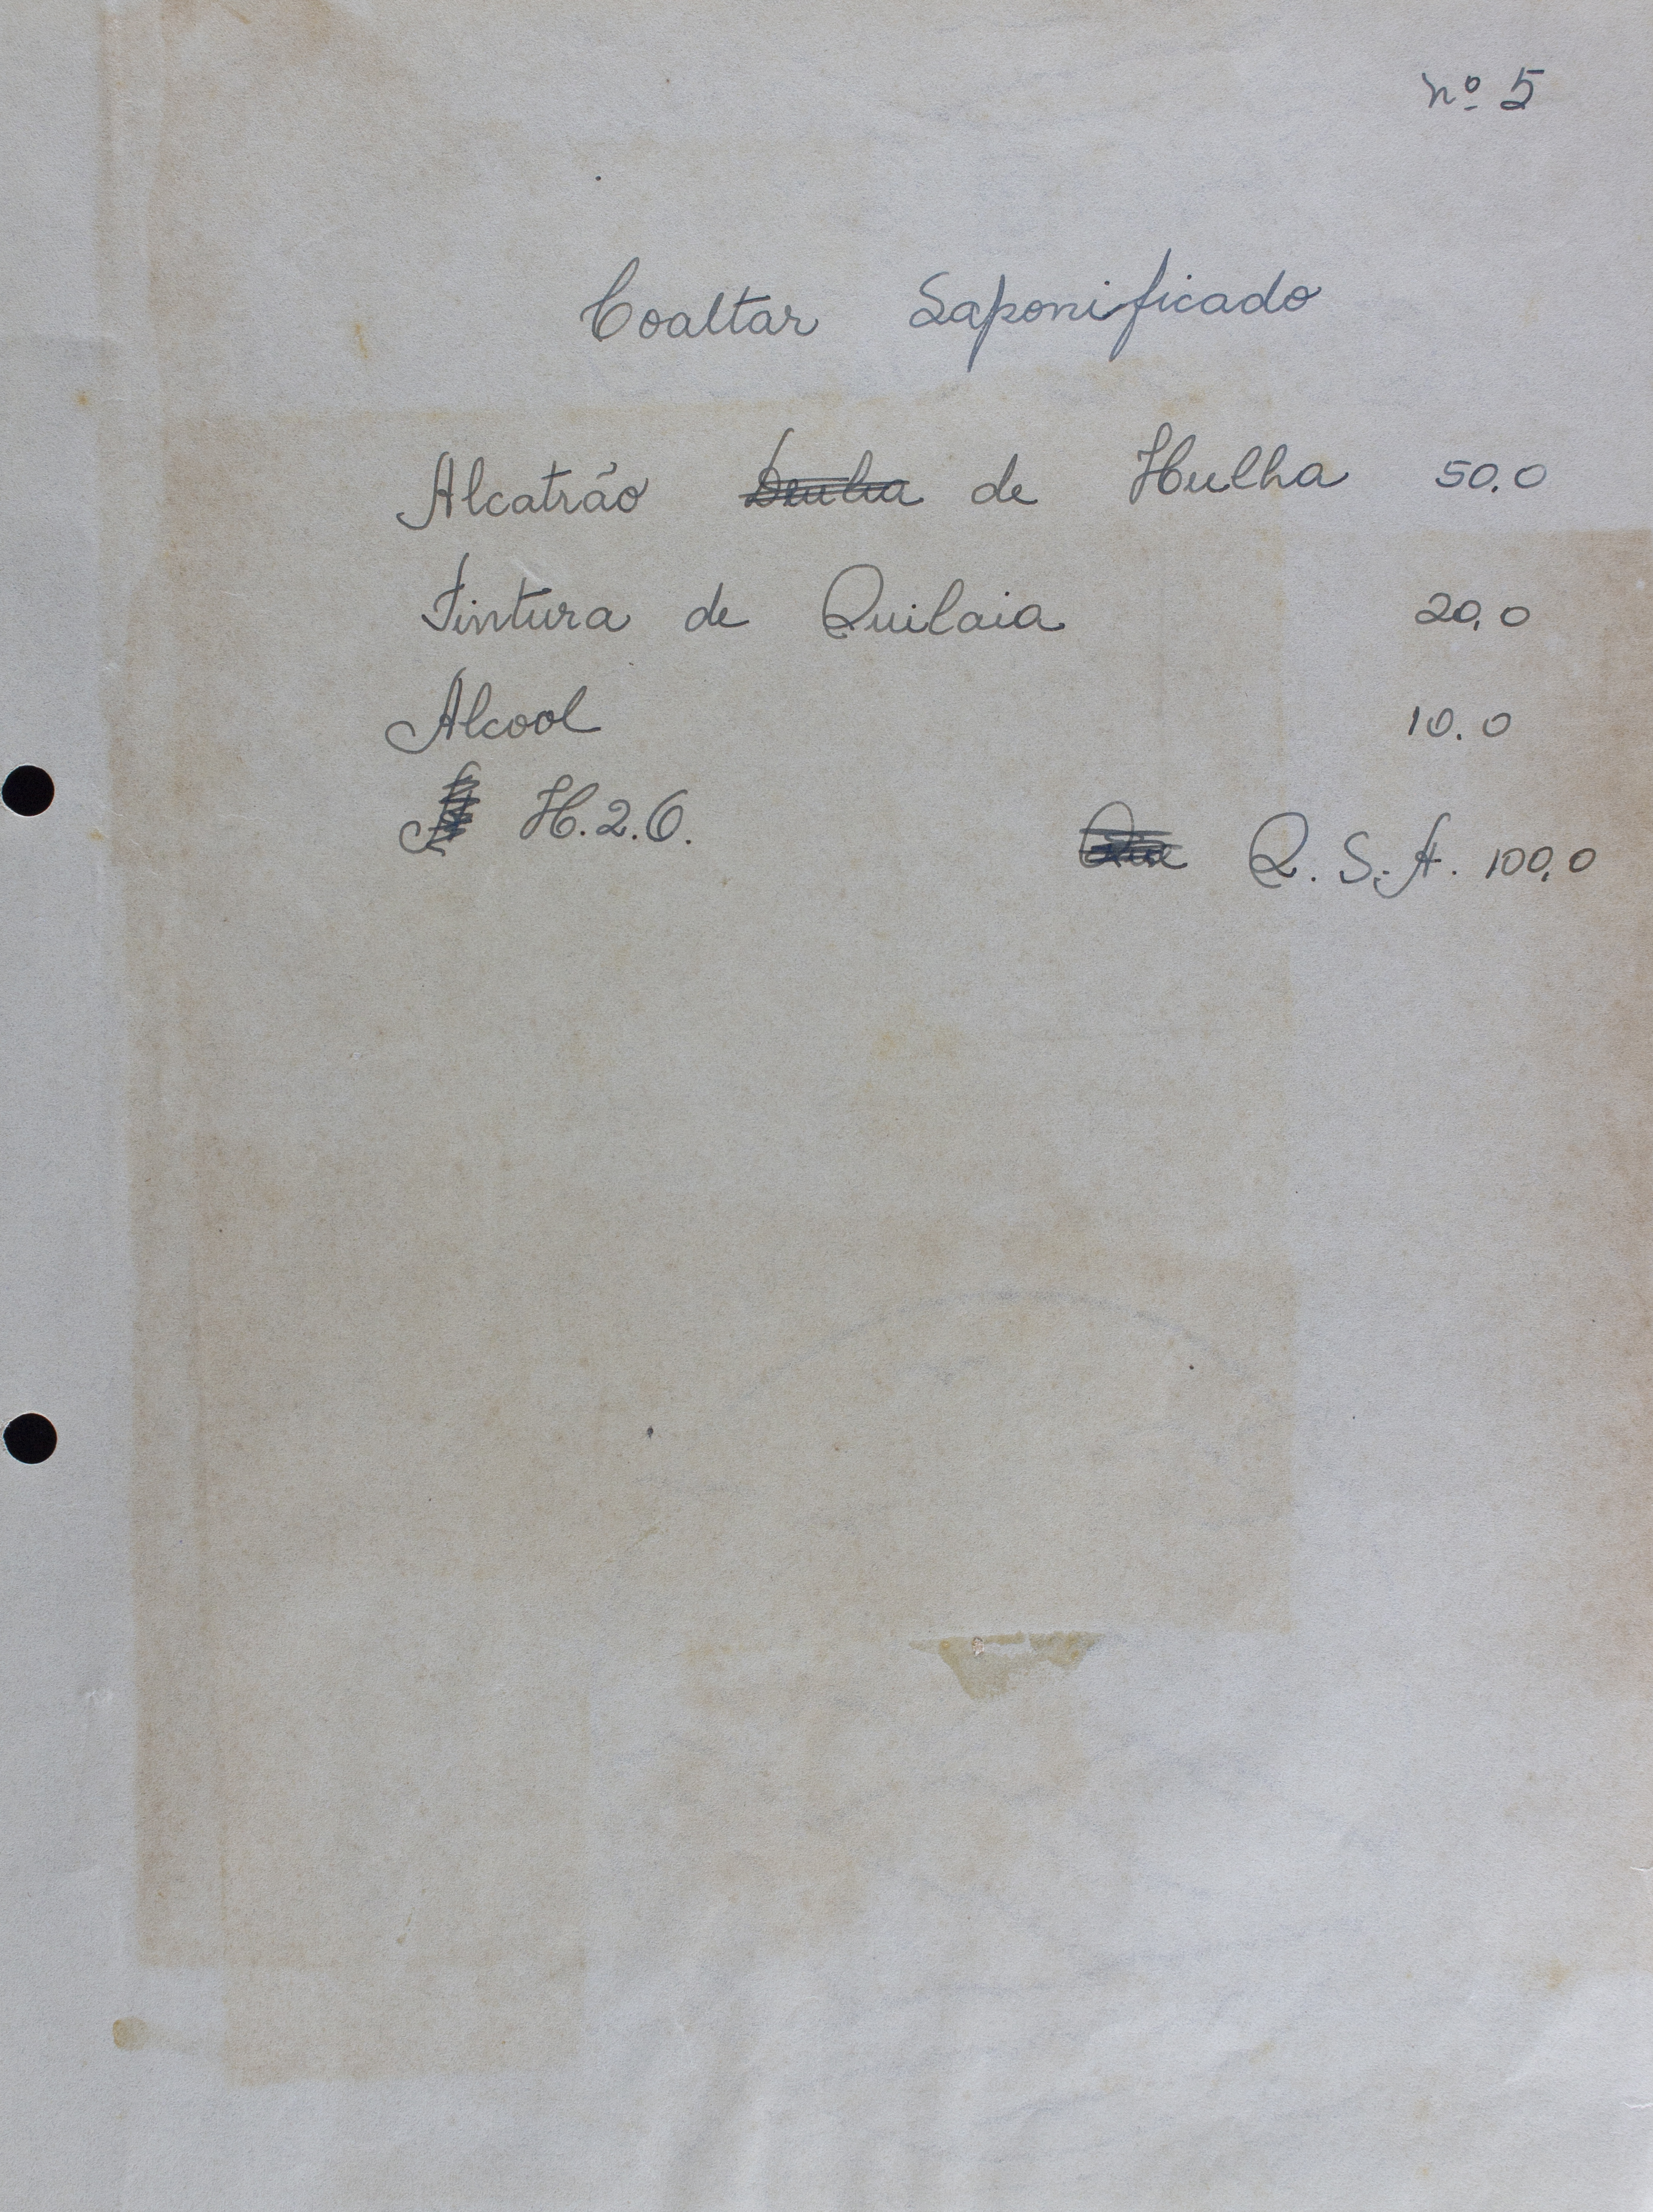 nº 5
Coaltar Saponificado
Alcatrão de Hulha 50.0
Tintura de Quilaia 20,0
Alcool 10.0
H.2.O.
Q.S.A. 100,0